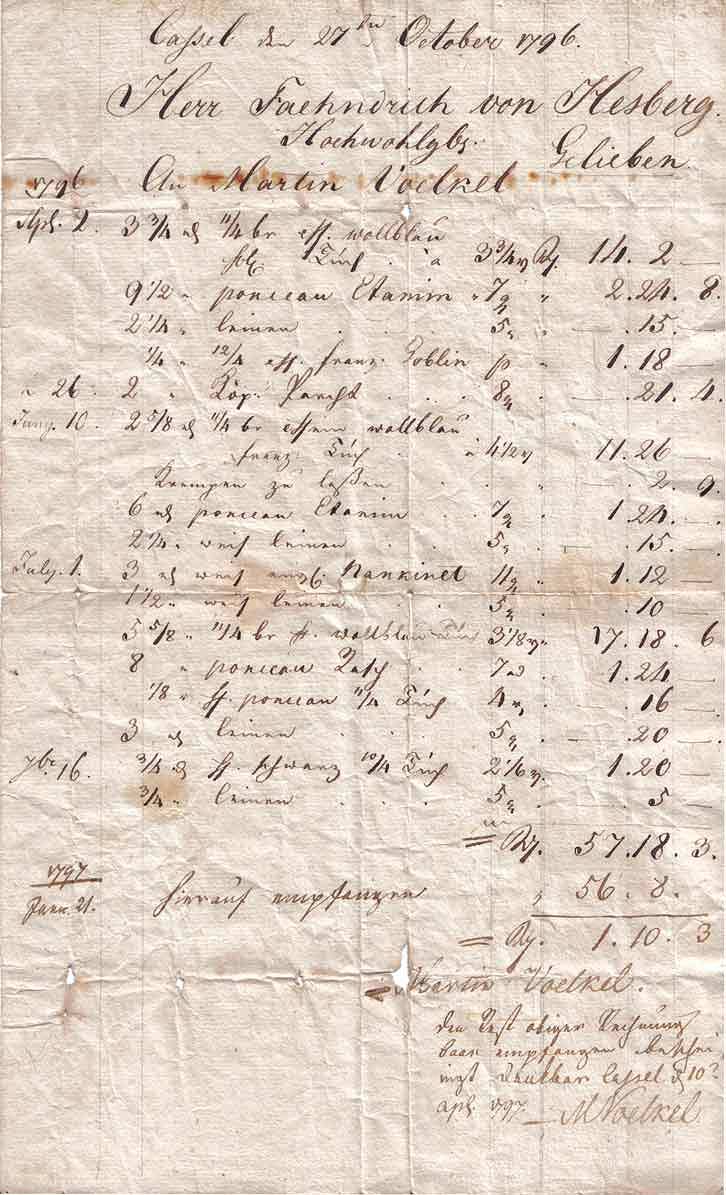 Cassel den 27ten October 1796.
Herr Faehndrich von Hesberg.
Hochwohlgb. Gelieben
1796 An Martin Voelkel
Apl. 2. 3 3/4 11/4 br eff. wollblau
Tuch a 3 3/4 Rg. 14. 2 —
9 1/2 " ponceau Etamin " 7 " 2. 24. 8.
2 1/4 " leinen . . . 5 " — . 15. —
1/4 " 12/4 eff. franz. Goblin p " 1. 18 —
" 26. 2 " Köp. Parcht . . . 8 — . 21. 4.
Juny. 10. 2 5/8 11/4 br effein wollblau
franz. Tuch . a 4 1/2 11. 26 —
Krempen zu laßen . . " — . 2. 9.
6 ponceau Etamin . . 7 . 1. 24. —
2 1/4 " weis leinen . . 5 . — . 15. —
July. 1. 3 weis Nankinet 11 " 1. 12 —
1 1/2 " weis leinen . . 5 . — . 10 —
5 5/8 " 11/4 br ff. wollblau Tuch 3 1/8 " 17. 18. 6
8 " ponceau Rasch . . 7 . 1. 24 —
1/8 " ff. ponceau 11/4 Tuch 4 . — . 16 —
3 leinen . . . 5 . — . 20 —
7br. 16. 3/4 ff. schwarz 10/4 Tuch 2 1/6 . 1. 20 —
3/4 " leinen . . . 5 " . — 5 —
= Rg. 57. 18. 3.
1797
Janu. 21. hierauf empfangen " 56. 8.
= Rg. 1. 10. 3
= Martin Voelkel.
den Rest obiger Rechnung
baar empfangen beschei-
nigt dankbar Cassel d 10
apl. 1797. — M Voelkel